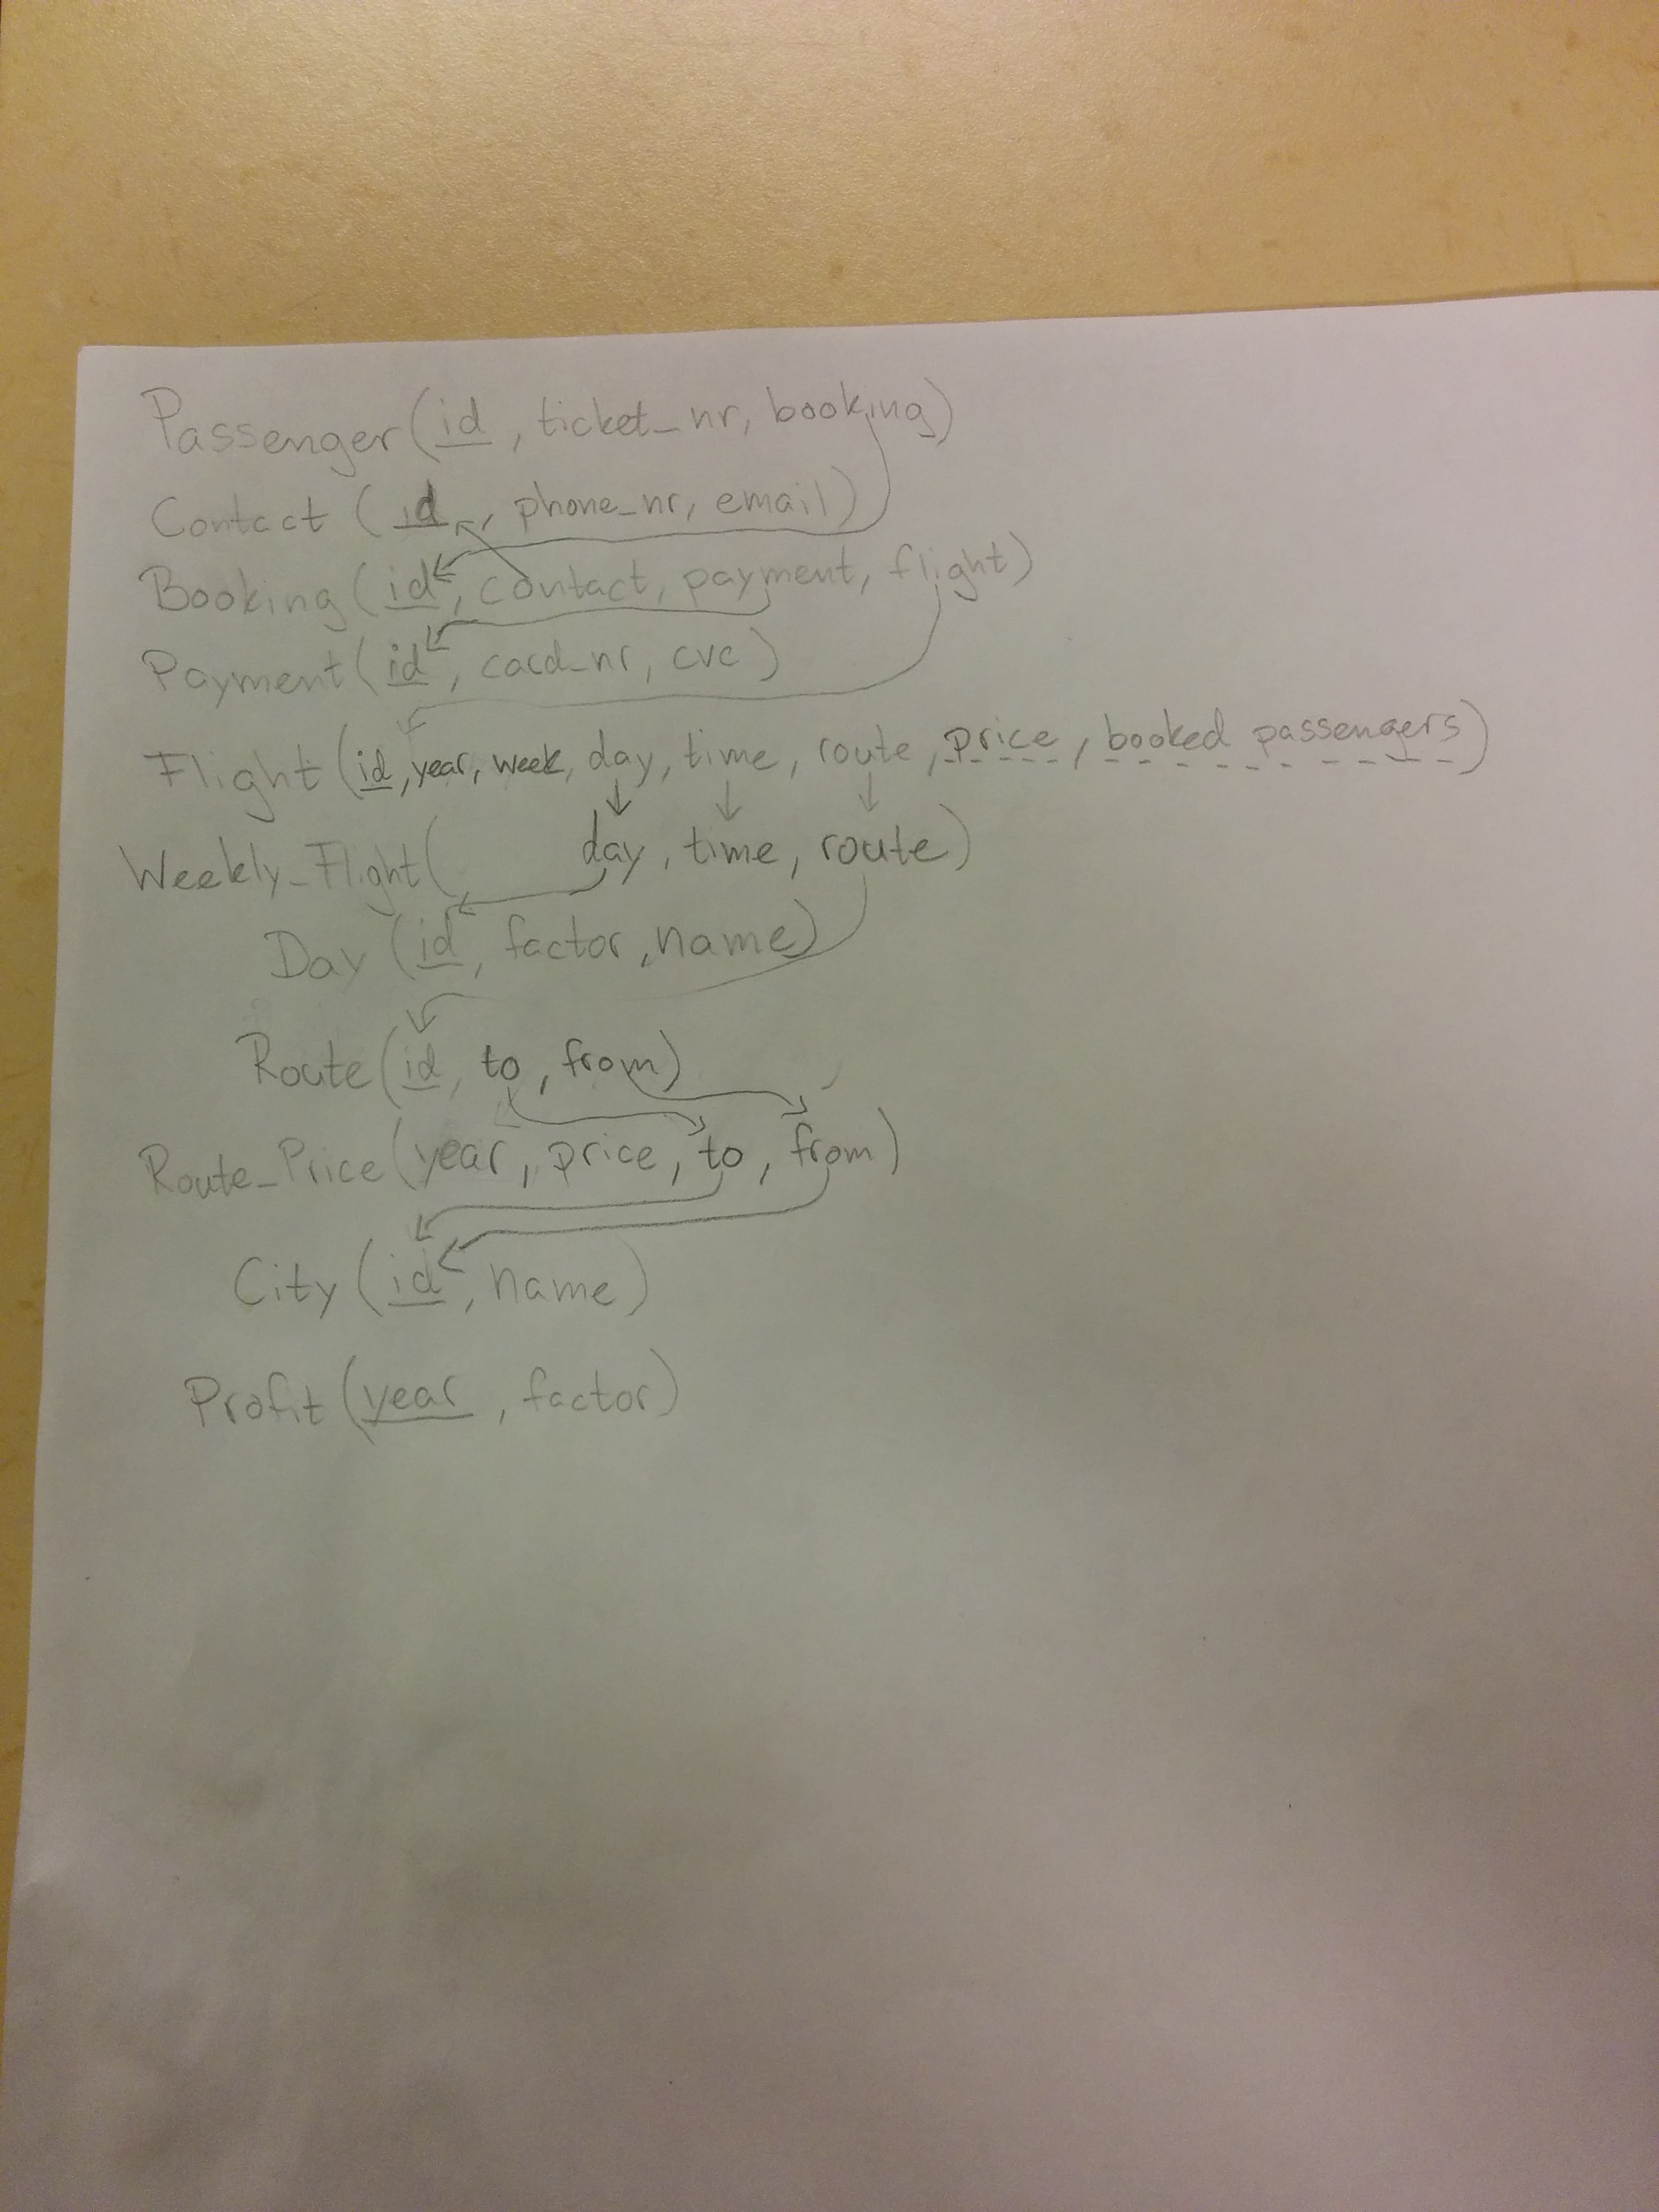 Passenger(id, ticket_nr, booking)
Contact (id, phone_nr, email)
Booking (id, contact, payment, flight)
Payment (id, card_nr, cvc)
Flight (id, year, week, day, time, route, price, booked passengers)
Weekly_Flight( day, time, route)
Day (id, factor, name)
Route (id, to, from)
Route_Price (year, price, to, from)
City (id, name)
Profit (year, factor)